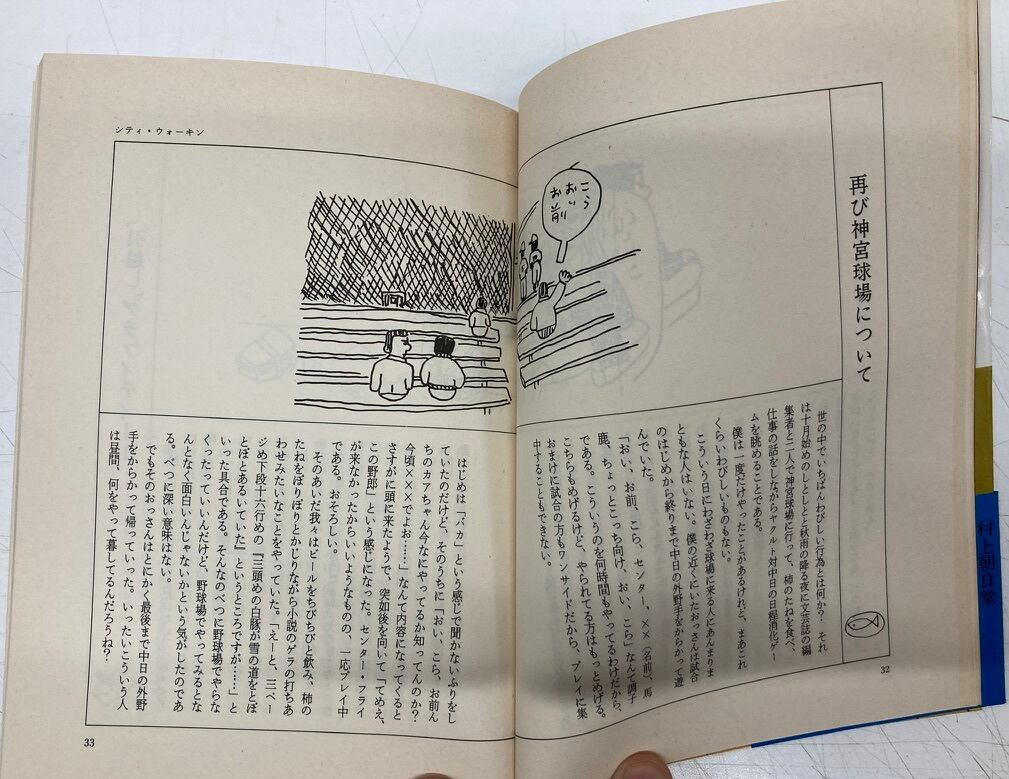 再び神宮球場について
こう
おい
お前
世の中でいちばんわびしい行為とは何か? それ
は十月始めのしとしとと秋雨の降る夜に文芸誌の編
集者と二人で神宮球場に行って、柿のたねを食べ、
仕事の話をしながらヤクルト対中日の日程消化ゲー
ムを眺めることである。
僕は一度だけやったことがあるけれど、まあこれ
くらいわびしいものもない。
こういう日にわざわざ球場に来る人にあんまりま
ともな人はいない。僕の近くにいたおっさんは試合
のはじめから終りまで中日の外野手をからかって遊
んでいた。
「おい、お前、こら、センター、××(名前)、馬
鹿、ちょっとこっち向け、おい、こら」なんて調子
である。こういうのを何時間もやってるわけだから、
こちらもめげるけど、やられてる方はもっとめげる。
おまけに試合の方もワンサイドだから、プレイに集
中することもできない。
32
シティ・ウォーキン
はじめは「バカ」という感じで聞かないふりをし
ていたのだけど、そのうちに「おい、こら、お前ん
ちのカアちゃん今なにやってるか知ってんのか?
今頃×××でよお……」なんて内容になってくると
さすがに頭に来たようで、突如後を向いて「てめえ、
この野郎」という感じになった。センター・フライ
が来なかったからいいようなものの、一応プレイ中
である。おそろしい。
そのあいだ我々はビールをちびちびと飲み、柿の
たねをぽりぽりとかじりながら小説のゲラの打ちあ
わせみたいなことをやっていた。「えーと、三ペー
ジめ下段十六行めの『三頭めの白豚が雪の道をとぼ
とぼとあるいていた』というところですが……」と
いった具合である。そんなのべつに野球場でやらな
くったっていいんだけど、野球場でやってみるとな
んとなく面白いんじゃないかという気がしたのであ
る。べつに深い意味はない。
でもそのおっさんはとにかく最後まで中日の外野
手をからかって帰っていった。いったいこういう人
は昼間、何をやって暮してるんだろうね?
33
村上朝日堂